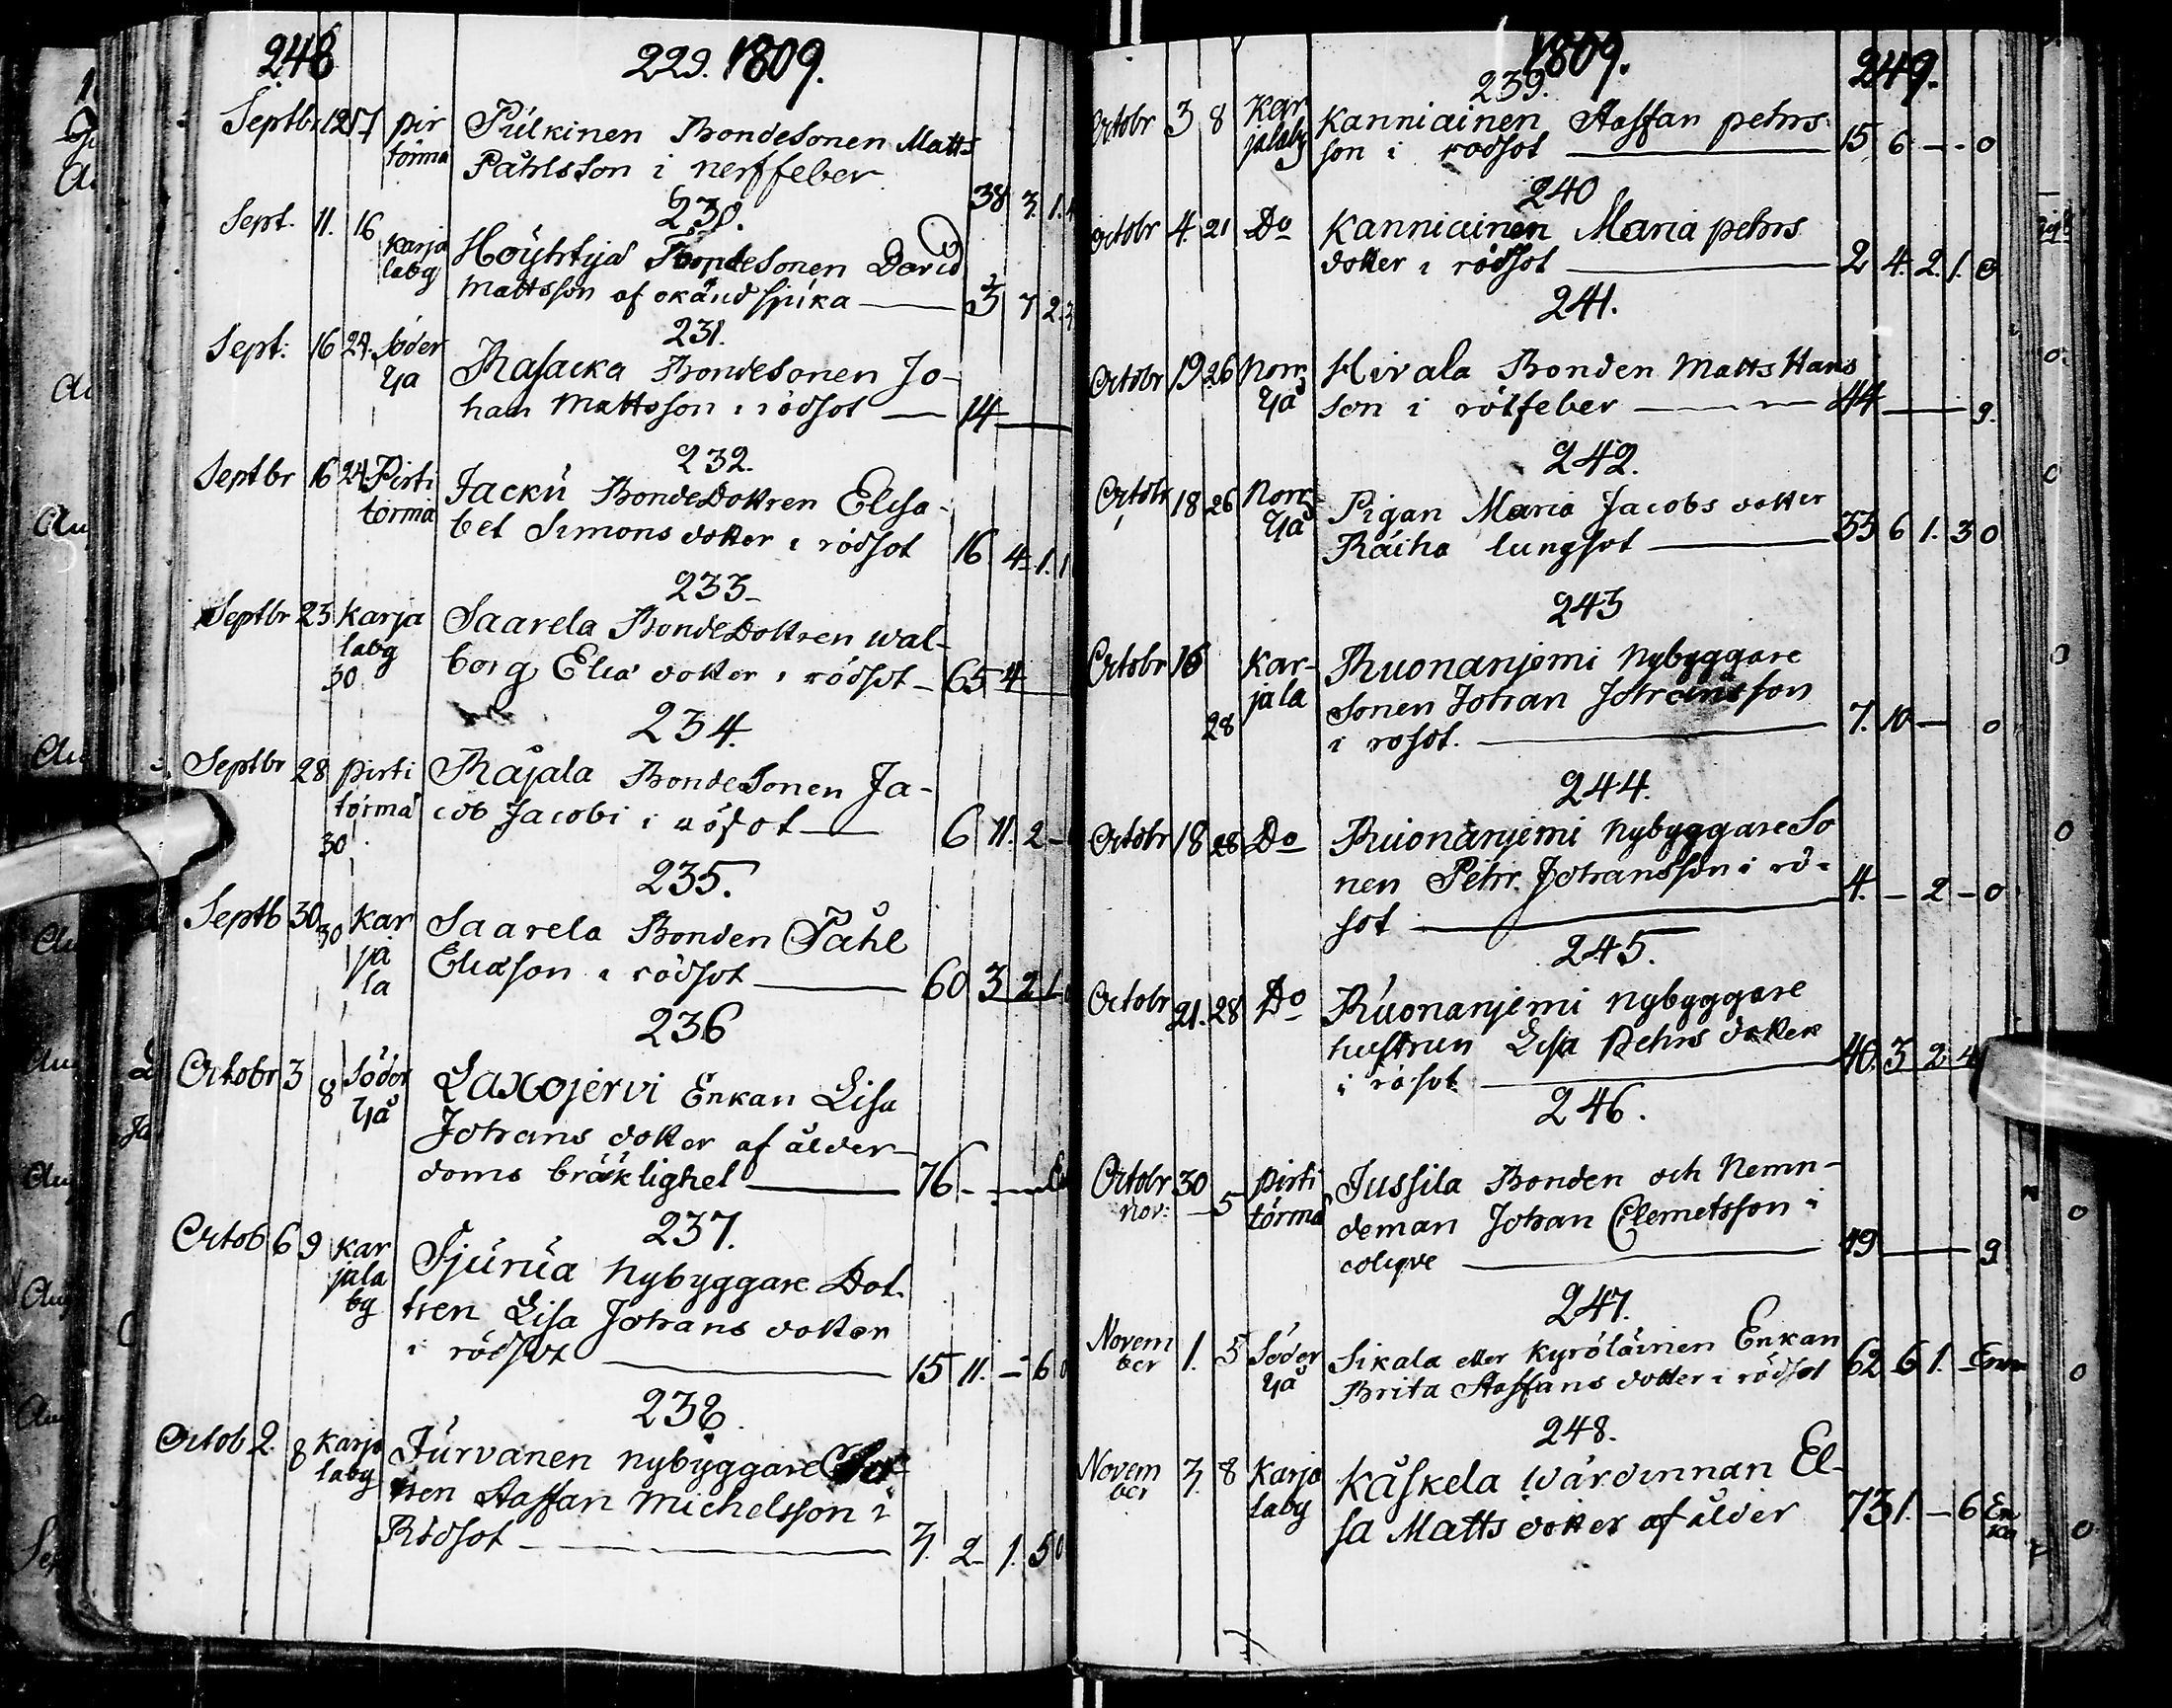 248
229. 1809.
Septbr 12 17 pir törmä Pulkinen Bondesonen Matts
Påhlsson i nerffeber 38 3. 1.
230.
Sept. 11. 16 Karja laby Höyhtyä Bondesonen David
Mattsson af okänd sjuka — 3 7 2.
231.
Sept: 16 24. Söder Yå Rasacka Bondesonen Jo-
han Mattsson i rödsot — 14 —
232.
Septbr 16 24 Pirti törmä Jacku BondeDottren Elisa-
bet Simons dotter i rödsot 16 4. 1. 1
233
Septbr 23 30 Karja laby Saarela BondeDottren wal-
borg Eliæ dotter i rödsot — 65 4
234.
Septbr 28 30 pirti törmä Rajala BondeSonen Ja-
cob Jacobi i rösot — 6 11. 2 —
235.
Septb 30 30 Kar ja la Saarela Bonden Påhl
Eliæson i rödsot — 60 3 2 1
236
Octobr 3 8 Söder Yå Laxojervi Enkan Lisa
Johans dotter af ålder
doms bräklighet — 76 —
237.
Octob 6 9 Kar jala by Tjurua nybyggare Dot-
tren Lisa Johans dotter
i rödsot — 15 11. — 6
238.
Octob 2. 8 Karja laby Turvanen nybyggare
Staffan Michelsson i
Rödsot — 7. 2 1. 5 0
1809.
249.
239.
Octobr 3 8 Kar jalaby Kanniainen Staffan pehrs
son i rodsot — 15 6 — - 0
240
Octobr 4. 21 Do Kanniainen Maria pehrs
dotter i rödsot — 2 4. 2. 1. 0
241.
Octobr 19 26 Norr Yå Hirvala Bonden Matts Hans
son i rötfeber — 44 — g.
242.
Octobr 18 26 Norr Yå Pigan Maria Jacobs dotter
Räiha lungsot — 55 6 1. 3 0
243
Octobr 16 28 Kar- jala Ruonanjemi Nybyggare
Sonen Johan Johansson
i rosot. — 7. 10 — 0
244.
Octobr 18 28 Do Ruonanjemi NybyggareSo
nen Pehr Johansson i rö-
sot — 4. — 2 — 0
245.
Octobr 21. 28 Do Ruonanjemi nybyggare
hustrun Lisa Pehrs dotter
i rösot — 40. 3 2 4
246.
Octobr 30 Nov: 5 pirti törmä Jussila Bonden och Nemn-
deman Johan Clemetsson i
colique — 49 — g
247.
Novem ber 1. 5 Söder Yå Sikala eller Kyröläinen Enkan
Brita Staffans dotter i rödsot 62 6 1. —
248.
Novem ber 3. 8 Karja laby Käskela Wärdinnan El-
sa Matts dotter af ålder 73 1. — 6 En ka